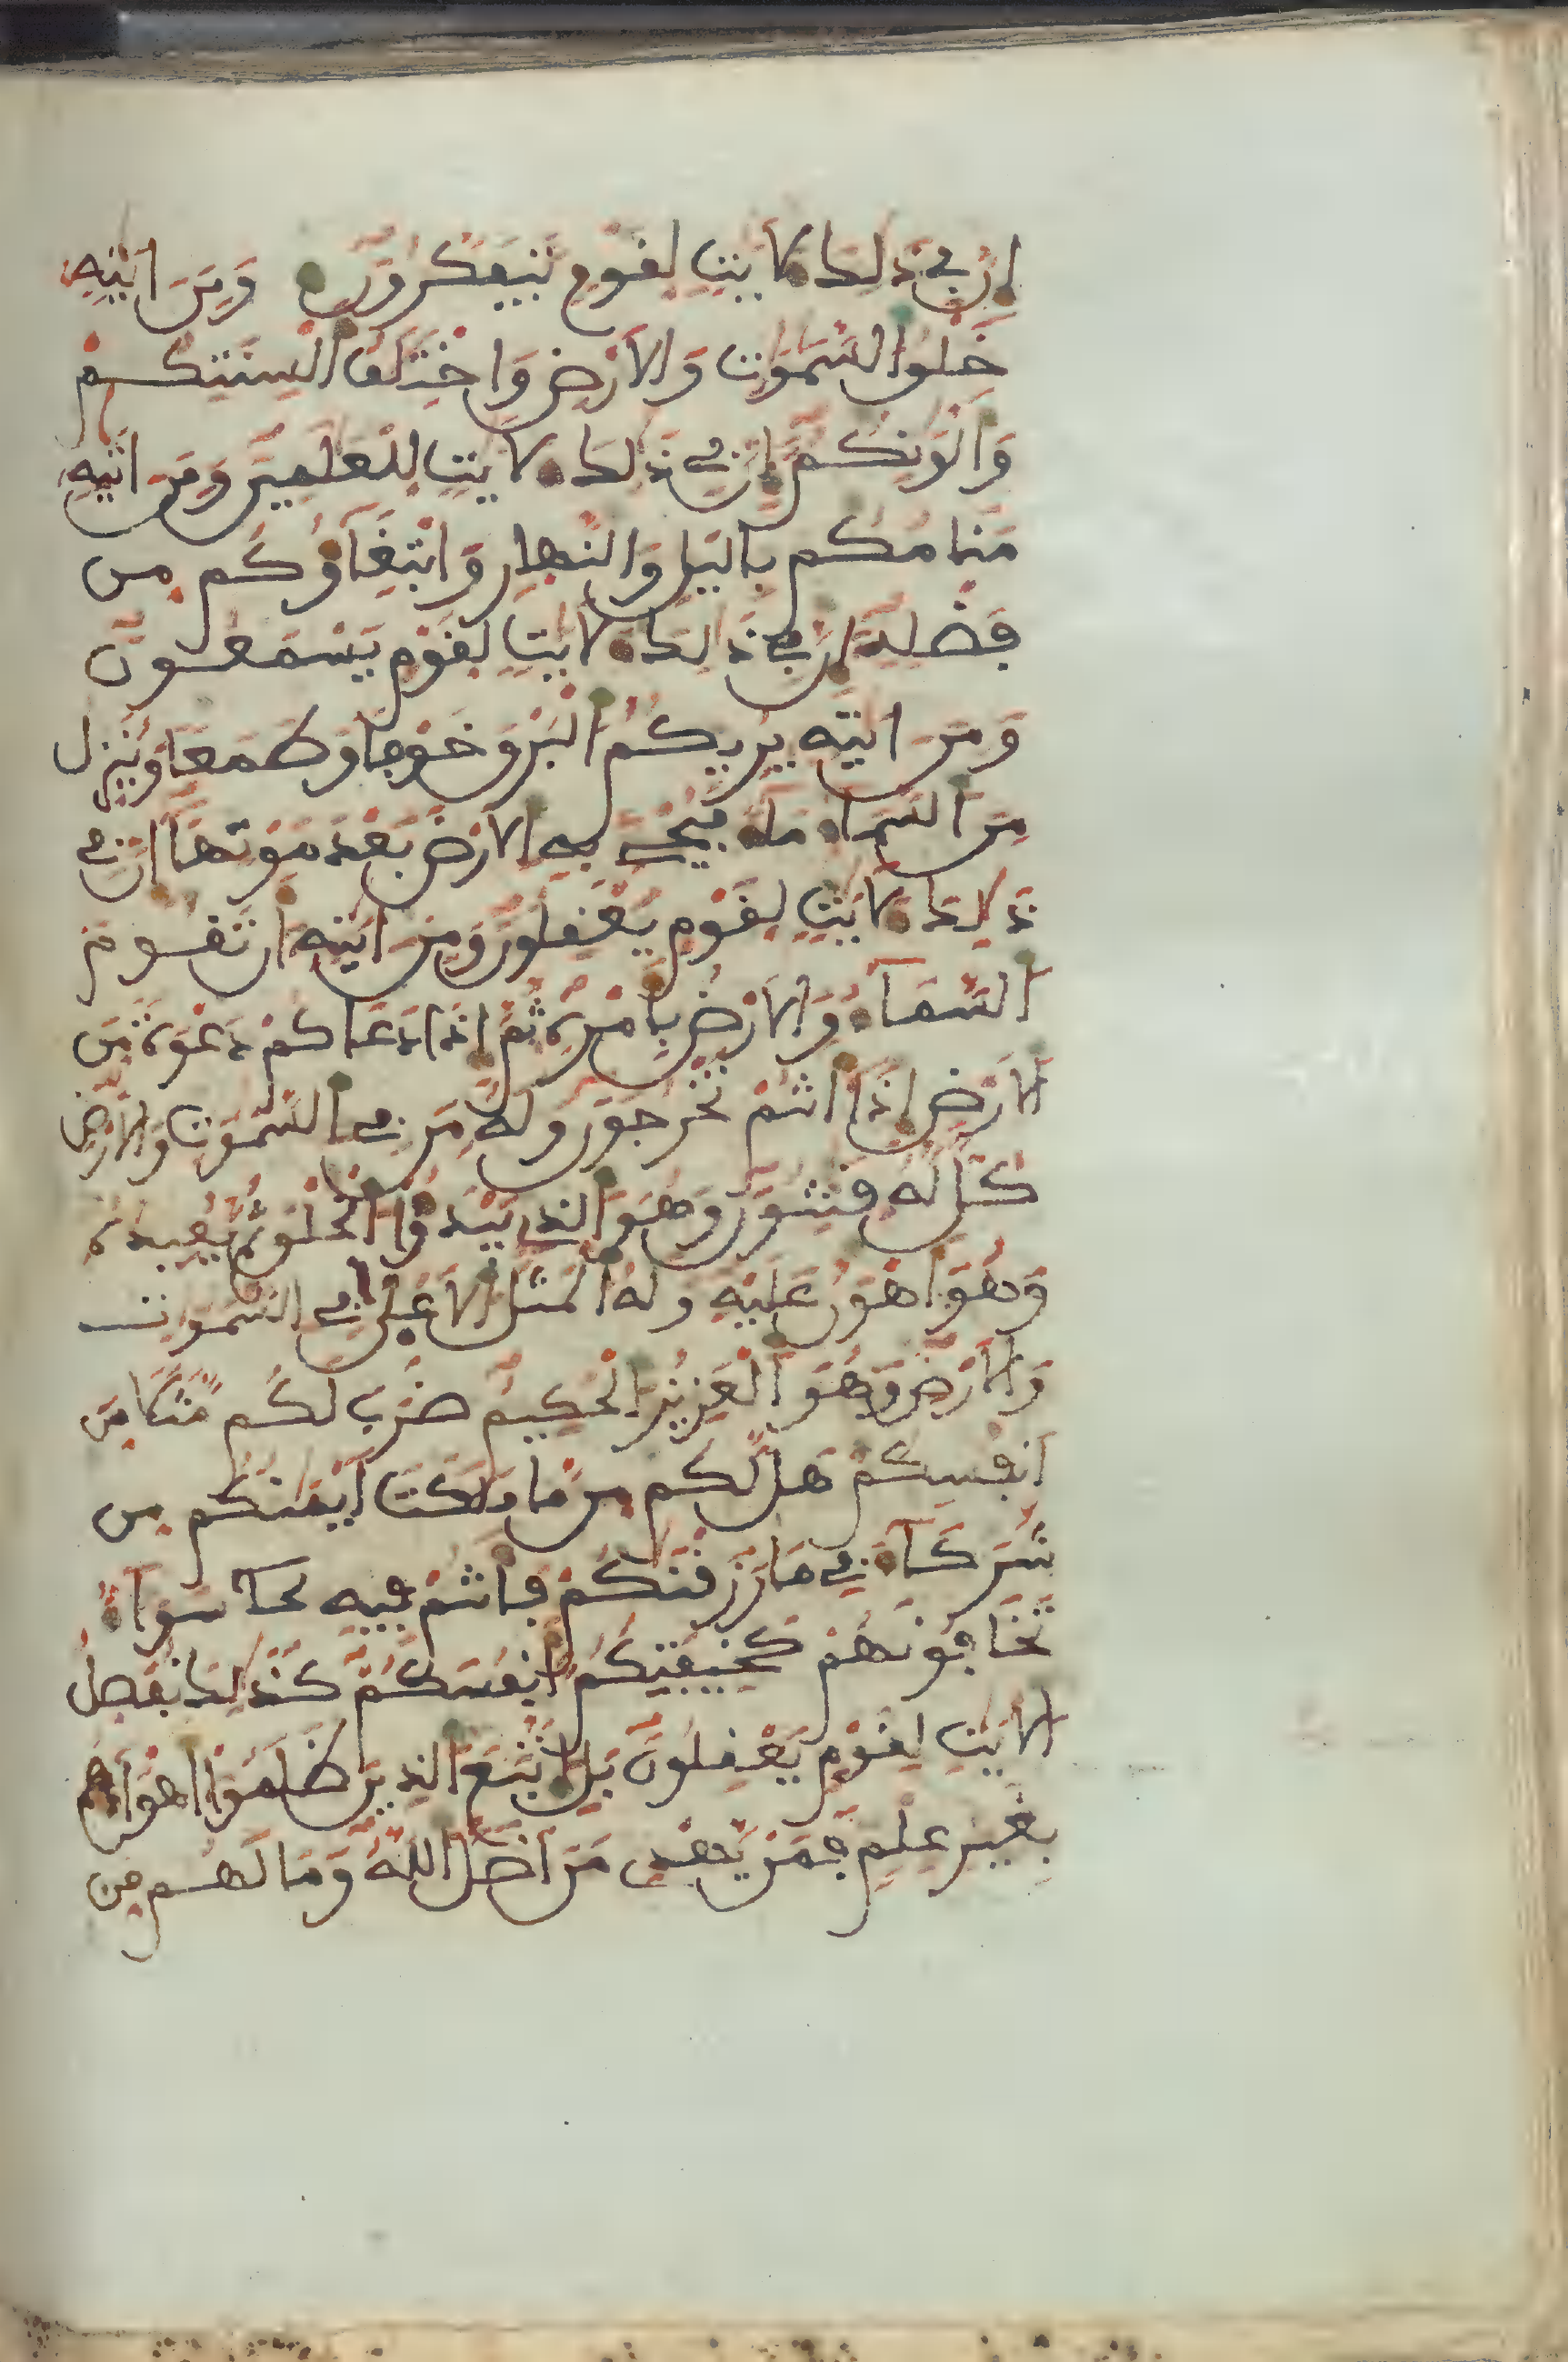 ان في ذلك لايت لقوم يتفكرون ومن ايته
خلق السموت والارض واختلف السنتكم
والونكم ان في ذلك لايت للعلمين ومن ايته
منامكم باليل والنهار وابتغاؤكم من
فضله ان في ذلك لايت لقوم يسمعون
ومن ايته يريكم البرق خوفا وطمعا وينزل
من السماء ماء فيحي به الارض بعد موتها ان في
ذلك لايت لقوم يعقلون ومن ايته ان تقوم
السماء والارض بامره ثم اذا دعاكم دعوة من
الارض اذا انتم تخرجون وله من في السموت والارض
كل له قنتون وهو الذي يبدؤا الخلق ثم يعيده
وهو اهون عليه وله المثل الاعلى في السموت
والارض وهو العزيز الحكيم ضرب لكم مثلا من
انفسكم هل لكم من ما ملكت ايمنكم من
شركاء في ما رزقنكم فانتم فيه سواء
تخافونهم كخيفتكم انفسكم كذلك نفصل
الايت لقوم يعقلون بل اتبع الذين ظلموا اهواءهم
بغير علم فمن يهدي من اضل الله وما لهم من